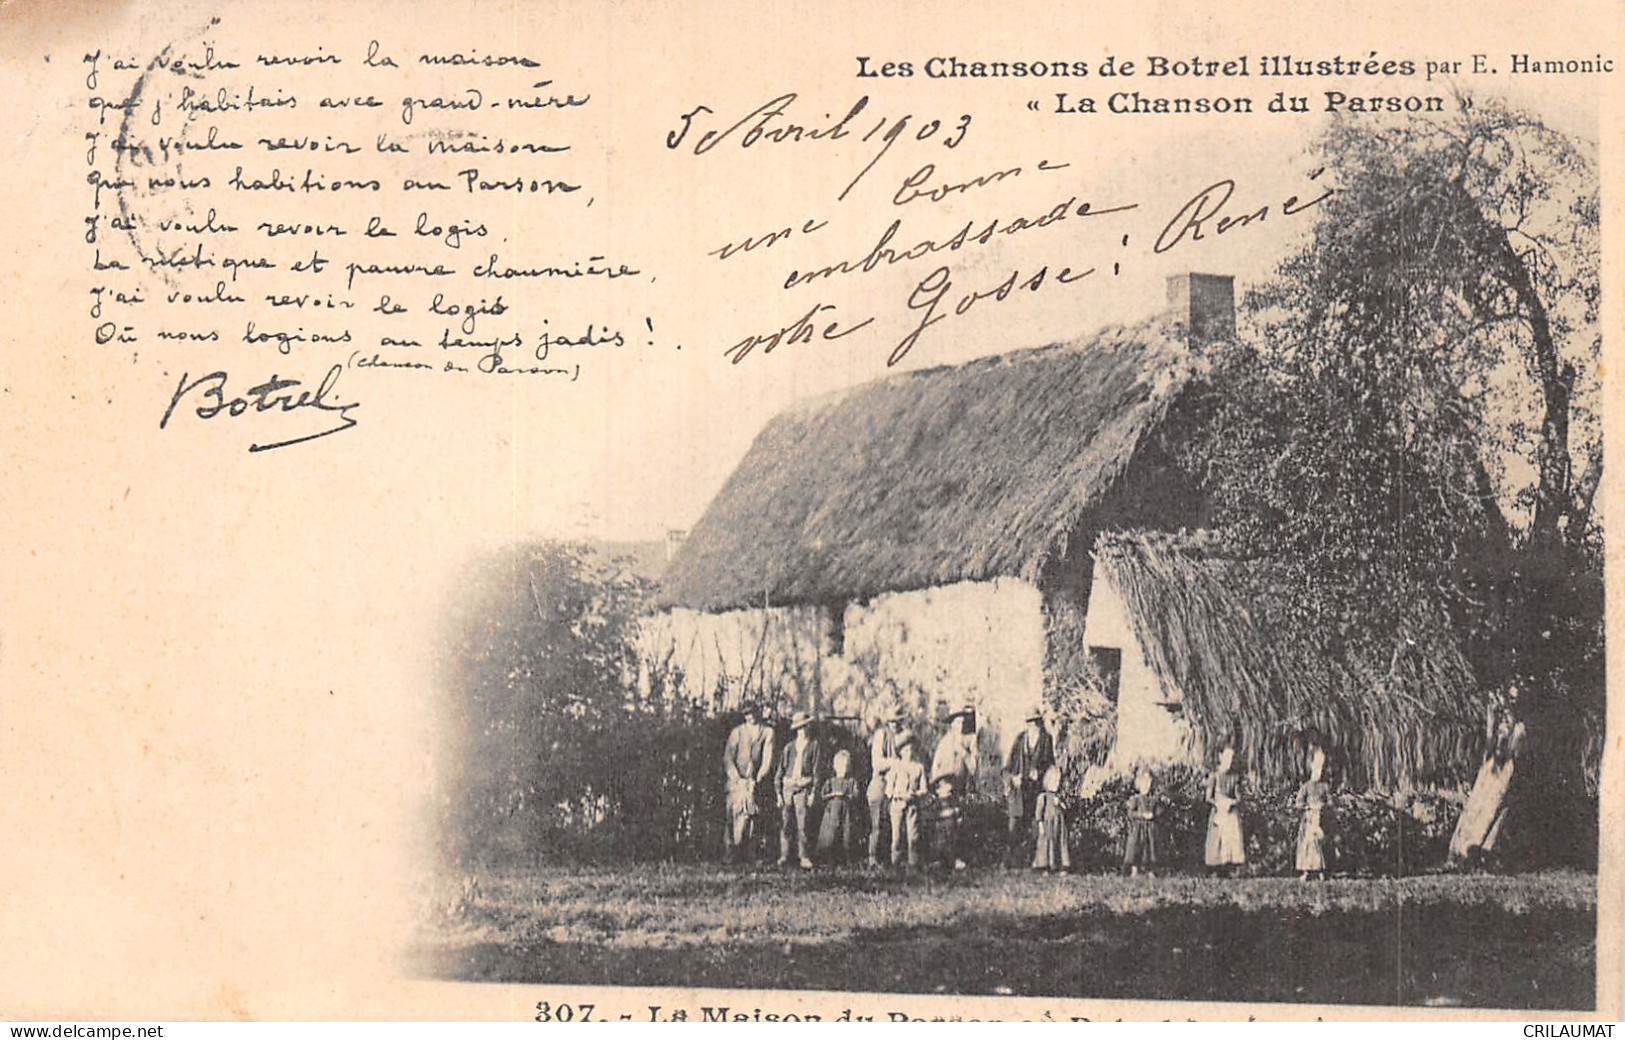 J'ai voulu revoir la maison
que j'habitais avec grand-mère
J'ai voulu revoir la maison
que nous habitions au Parson,
J'ai voulu revoir le logis,
La rustique et pauvre chaumière,
J'ai voulu revoir le logis
Où nous logions au temps jadis !.
(Chanson du Parson)
Botrel
Les Chansons de Botrel illustrées par E. Hamonic
« La Chanson du Parson »
5 Avril 1903
une bonne
embrassade
votre Gosse ! René
307. - La Maison du Parson où Botrel
delcampe.net
CRILAUMAT